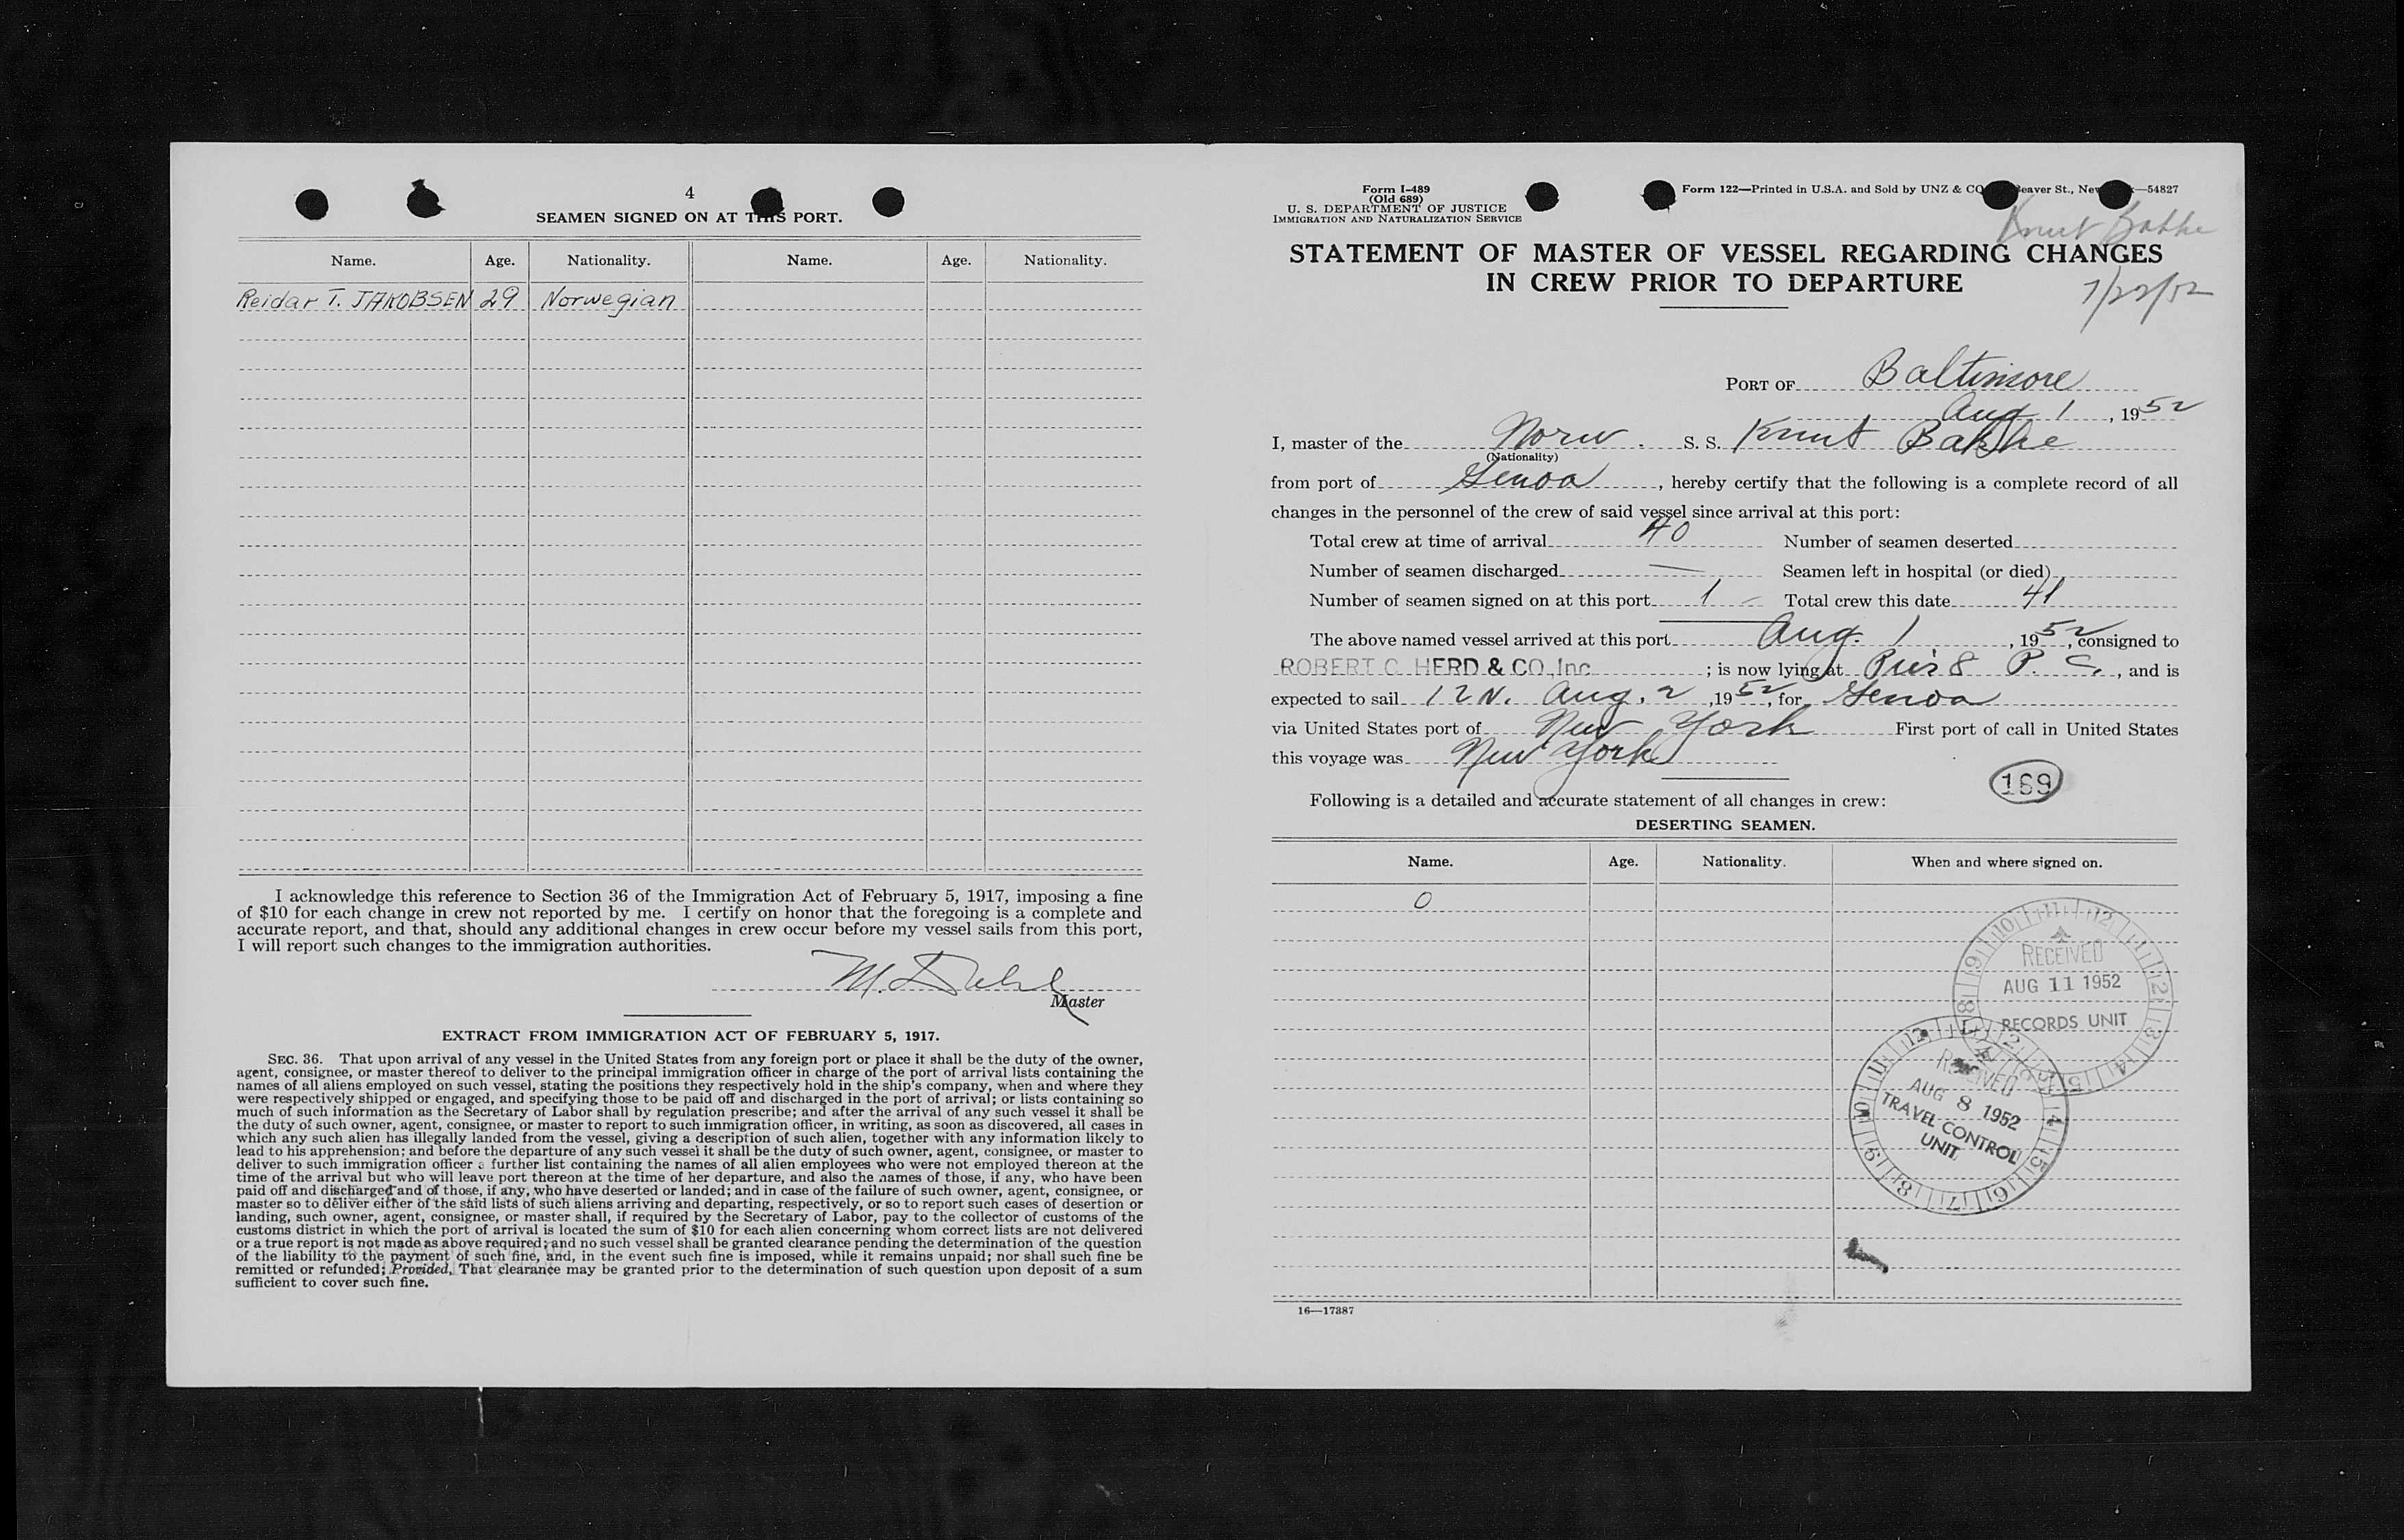 4
SEAMEN SIGNED ON AT THIS PORT.
Name. Age. Nationality. Name. Age. Nationality.
Reidar T. JAKOBSEN 29 Norwegian
I acknowledge this reference to Section 36 of the Immigration Act of February 5, 1917, imposing a fine
of $10 for each change in crew not reported by me. I certify on honor that the foregoing is a complete and
accurate report, and that, should any additional changes in crew occur before my vessel sails from this port,
I will report such changes to the immigration authorities.
M. Dahl
Master
EXTRACT FROM IMMIGRATION ACT OF FEBRUARY 5, 1917.
SEC. 36. That upon arrival of any vessel in the United States from any foreign port or place it shall be the duty of the owner,
agent, consignee, or master thereof to deliver to the principal immigration officer in charge of the port of arrival lists containing the
names of all aliens employed on such vessel, stating the positions they respectively hold in the ship's company, when and where they
were respectively shipped or engaged, and specifying those to be paid off and discharged in the port of arrival; or lists containing so
much of such information as the Secretary of Labor shall by regulation prescribe; and after the arrival of any such vessel it shall be
the duty of such owner, agent, consignee, or master to report to such immigration officer, in writing, as soon as discovered, all cases in
which any such alien has illegally landed from the vessel, giving a description of such alien, together with any information likely to
lead to his apprehension; and before the departure of any such vessel it shall be the duty of such owner, agent, consignee, or master to
deliver to such immigration officer a further list containing the names of all alien employees who were not employed thereon at the
time of the arrival but who will leave port thereon at the time of her departure, and also the names of those, if any, who have been
paid off and discharged and of those, if any, who have deserted or landed; and in case of the failure of such owner, agent, consignee, or
master so to deliver either of the said lists of such aliens arriving and departing, respectively, or so to report such cases of desertion or
landing, such owner, agent, consignee, or master shall, if required by the Secretary of Labor, pay to the collector of customs of the
customs district in which the port of arrival is located the sum of $10 for each alien concerning whom correct lists are not delivered
or a true report is not made as above required; and no such vessel shall be granted clearance pending the determination of the question
of the liability to the payment of such fine, and, in the event such fine is imposed, while it remains unpaid; nor shall such fine be
remitted or refunded; Provided, That clearance may be granted prior to the determination of such question upon deposit of a sum
sufficient to cover such fine.
Form I-489
(Old 689)
U. S. DEPARTMENT OF JUSTICE
IMMIGRATION AND NATURALIZATION SERVICE
Form 122—Printed in U.S.A. and Sold by UNZ & CO eaver St., New —54827
Knut Bakke
STATEMENT OF MASTER OF VESSEL REGARDING CHANGES
IN CREW PRIOR TO DEPARTURE
7/22/52
PORT OF Baltimore
Aug 1, 1952
I, master of the Norw. S. S. Knut Bakke
(Nationality)
from port of Genoa, hereby certify that the following is a complete record of all
changes in the personnel of the crew of said vessel since arrival at this port:
Total crew at time of arrival 40 Number of seamen deserted
Number of seamen discharged — Seamen left in hospital (or died)
Number of seamen signed on at this port 1 – Total crew this date 41
The above named vessel arrived at this port Aug. 1, 1952, consigned to
ROBERT C. HERD & CO., Inc; is now lying at Pier 8 P. C., and is
expected to sail 12 N. Aug. 2, 1952, for Genoa
via United States port of New York First port of call in United States
this voyage was New York
169
Following is a detailed and accurate statement of all changes in crew:
DESERTING SEAMEN.
Name. Age. Nationality. When and where signed on.
0
RECEIVED
AUG 11 1952
RECORDS UNIT
RECEIVED
AUG 8 1952
TRAVEL CONTROL
UNIT
16—17387